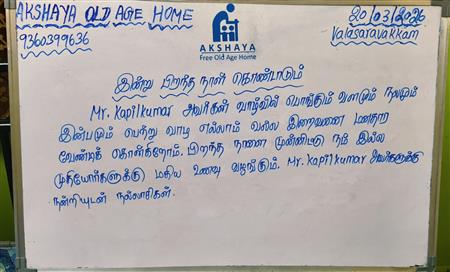 AKSHAYA OLD AGE HOME
9360399636
20/03/2026
Valasaravakkam
AKSHAYA
Free Old Age Home
இன்று பிறந்த நாள் கொண்டாடும்
Mr. Kapilkumar அவர்கள் வாழ்வில் பொங்கும் வளமும் நலமும்
இன்பமும் பெற்று வாழ எல்லாம் வல்ல இறைவனை மனதார
வேண்டிக் கொள்கிறோம். பிறந்த நாளை முன்னிட்டு நம் இல்ல
முதியோர்களுக்கு மதிய உணவு வழங்கும். Mr. Kapilkumar அவர்களுக்கு
நன்றியுடன் நல்லாசிகள்.